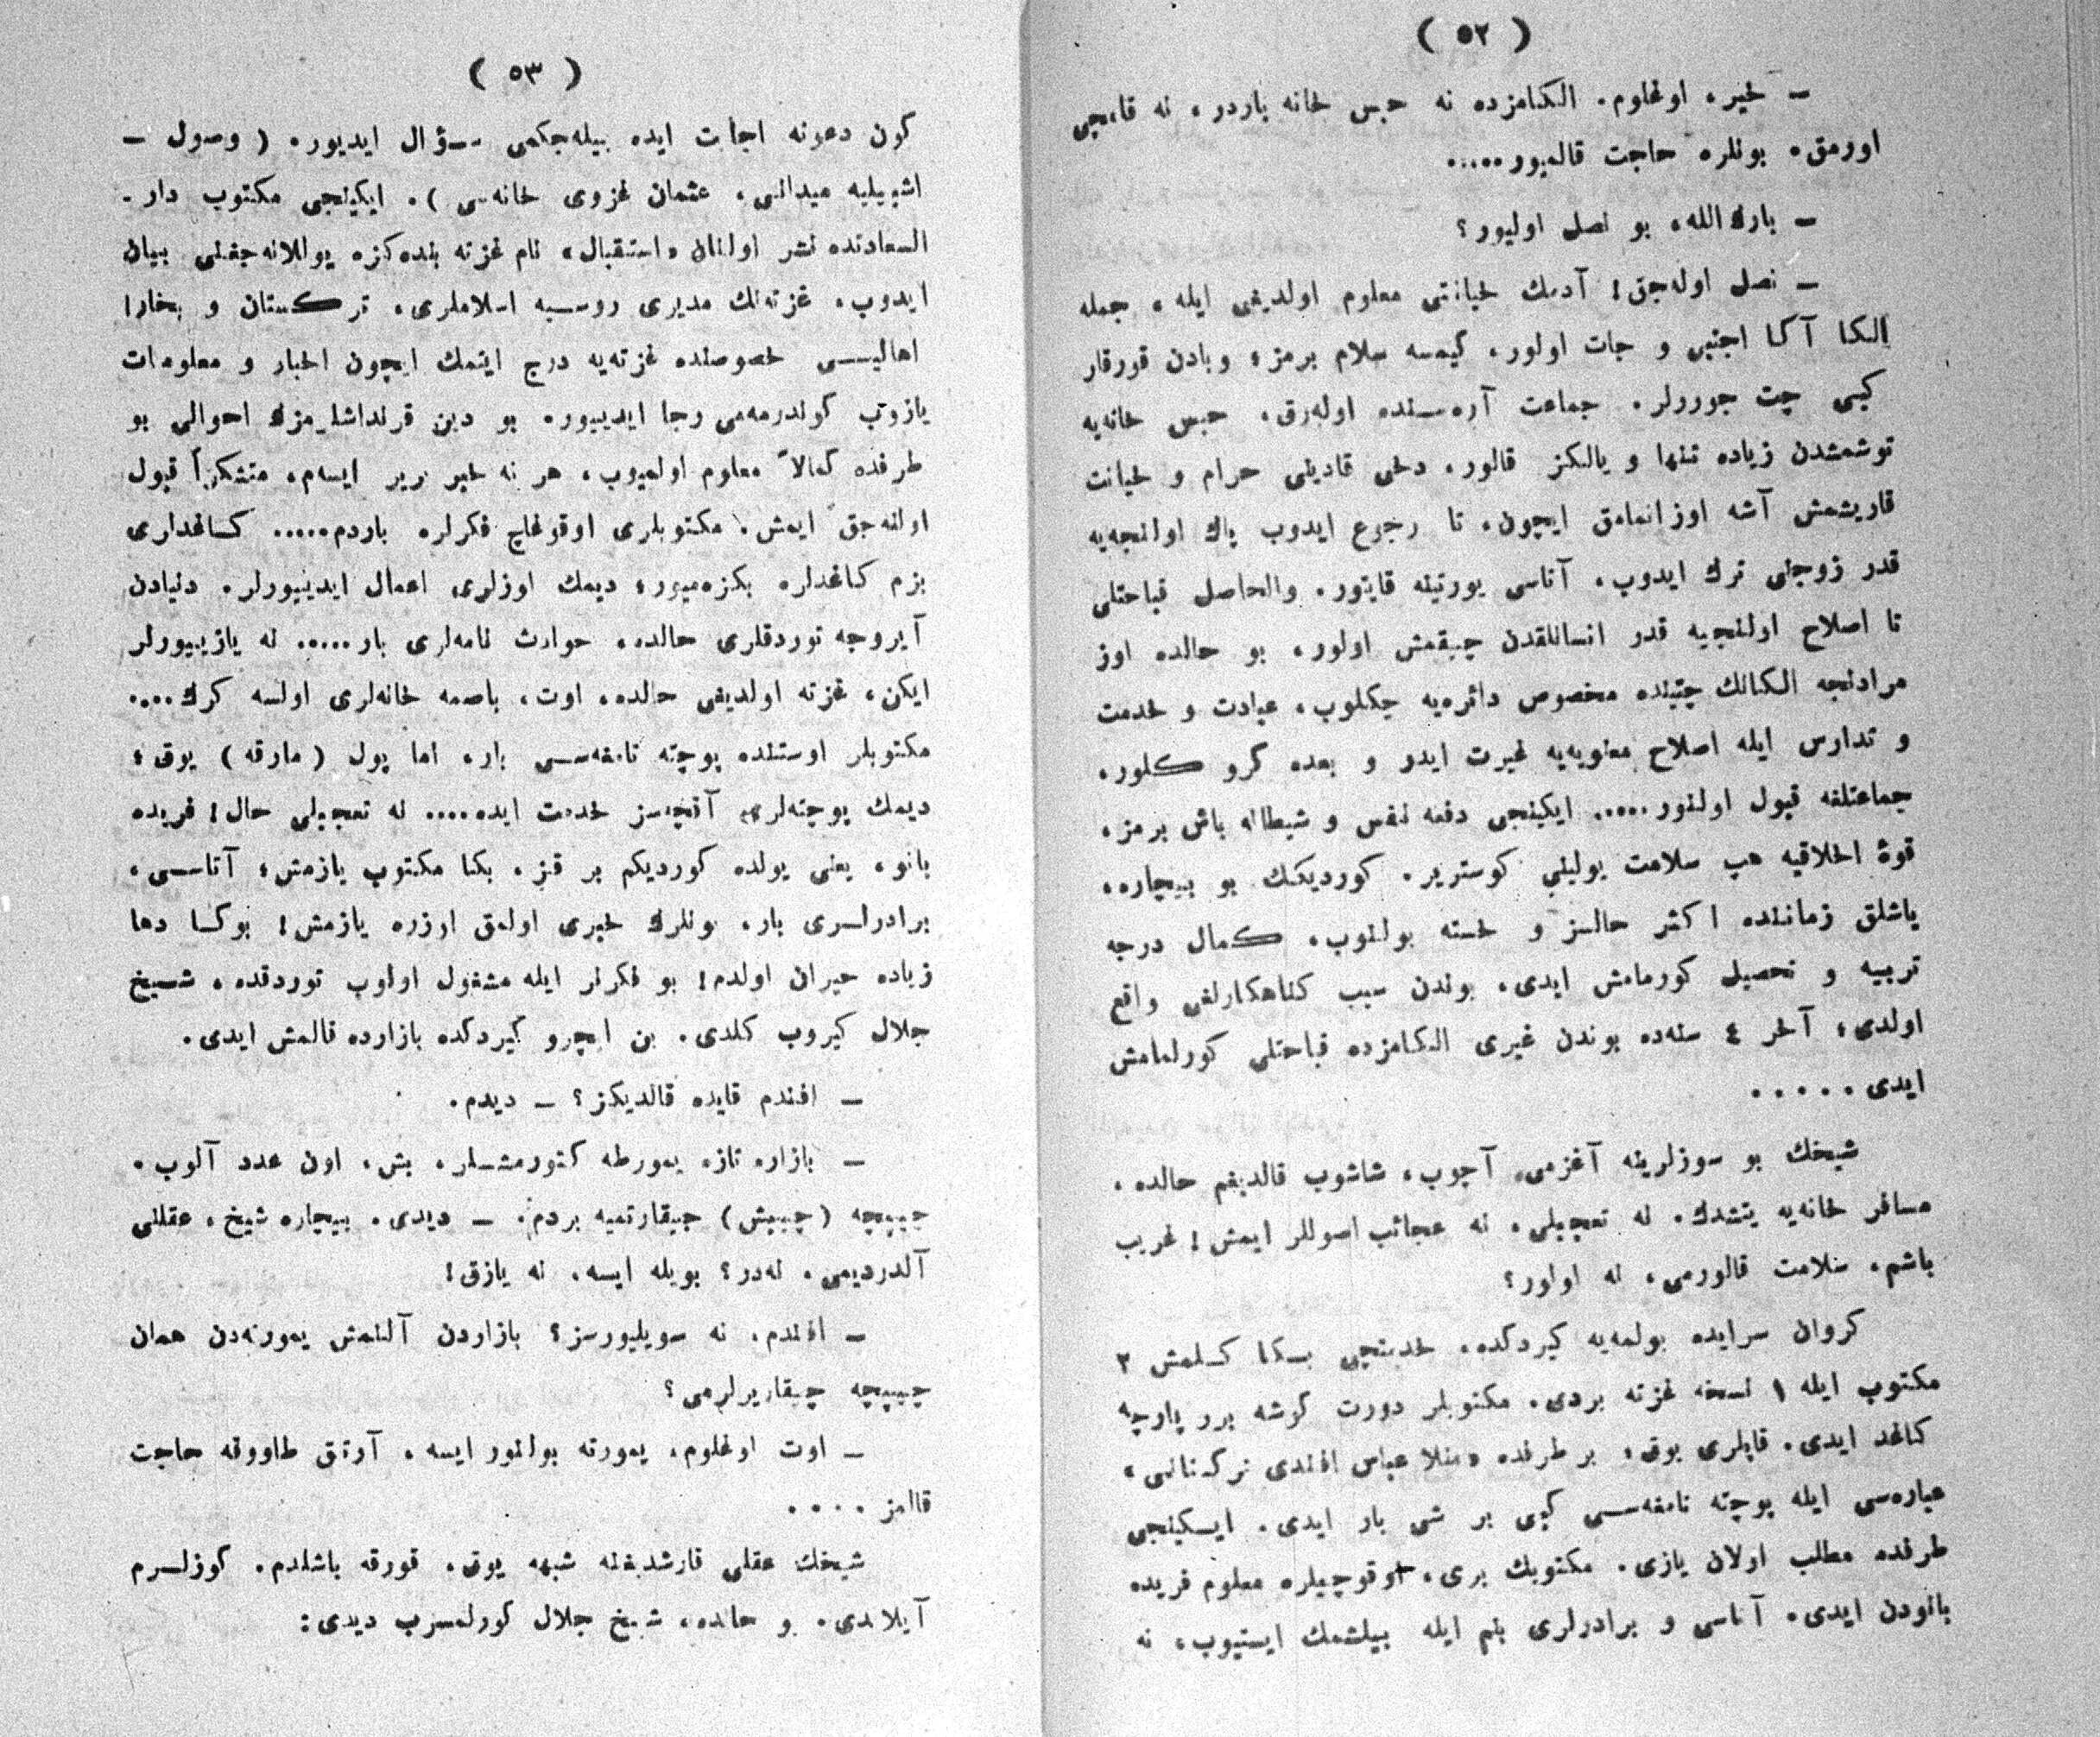 ( ٥٢ )
– خير، اوغلوم. الكامزده نه حبس خانه باردر، نه قامچی
اورمق. بونلره حاجت قالمیور.....
– بارك الله، بو نصل اولیور؟
– نصل اوله‌جق! آدمك خیانتی معلوم اولدیغی ایله، جمله
الكا آكا اجنبی و جات اولور، كیمسه سلام برمز؛ وبادن قورقار
كبی چت جوررلر. جماعت آره‌سنده اوله‌رق، حبس خانه‌یه
توشمشدن زیاده تنها و یالكز قالور، دخی قادینی حرام و خیانت
قاریشمش آشه اوزانمامق ایچون، تا رجوع ایدوب پاك اولنجه‌یه
قدر زوجنی ترك ایدوب، آتاسی یورتینه قایتور. والحاصل قباحتلی
تا اصلاح اولنجیه قدر انسانلقدن چیقمش اولور، بو حالده اوز
مرادنجه الكانك چتینده مخصوص دائره‌یه چكلوب، عبادت و خدمت
و تدارس ایله اصلاح معنویه‌یه غیرت ایدر و بعده كرو كلور،
جماعتلغه قبول اولنور..... ایكینجی دفعه نفس و شیطانه باش برمز،
قوۀ اخلاقیه هپ سلامت یولینی كوستریر. كوردیكك بو بیچاره،
یاشلق زماننده اكثر حالسز و خسته بولنوب، كمال درجه
تربیه و تحصیل كورمامش ایدی، بوندن سبب كناهكارلغی واقع
اولدی؛ آخر ٤ سنه‌ده بوندن غیری الكامزده قباحتلی كورلمامش
ایدی.....
شیخك بو سوزلرینه آغزمی آچوب، شاشوب قالدیغم حالده،
مسافر خانه‌یه یتشدك. نه تعجبلی، نه عجائب اصوللر ایمش! غریب
باشم، سلامت قالورمی، نه اولور؟
كروان سرایده بولمه‌یه كیردكده، خدمتچی بكا كلمش ۲
مكتوب ایله ۱ نسخه غزته بردی. مكتوبلر دورت كوشه برر پارچه
كاغد ایدی. قاپلری یوق، بر طرفده «منلا عباس افندی تركستانی»
عباره‌سی ایله پوچته تامغه‌سی كبی بر شی بار ایدی. ایكینجی
طرفده مطلب اولان یازی. مكتوبك بری، اوقوچیلره معلوم فریده
بانودن ایدی. آتاسی و برادرلری بنم ایله بیلشمك ایستیوب، نه
( ٥٣ )
كون دعوته اجابت ایده بیله‌جكمی سؤال ایدیور. ( وصول –
اشبیلیه میدانی، عثمان غزوی خانه‌سی ). ایكینجی مكتوب دار-
السعادتده نشر اولنان «استقبال» نام غزته بنده‌كزه یوللانه‌جغنی بیان
ایدوب، غزته‌نك مدیری روسیه اسلاملری، تركستان و بخارا
اهالیسی خصوصنده غزته‌یه درج ایتمك ایچون اخبار و معلومات
یازوب كوندرمه‌می رجا ایدییور. بو دین قرنداشلرمزك احوالی بو
طرفده كمالاً معلوم اولمیوب، هر نه خبر بریر ایسه‌م، متشكراً قبول
اولنه‌جق ایمش. مكتوبلری اوقوغاچ فكرلره باردم..... كاغدلری
بزم كاغدلره بكزه‌میور؛ دیمك اوزلری اعمال ایدییورلر. دنیادن
آیروجه توردقلری حالده، حوادث نامه‌لری بار..... نه یازییورلر
ایكن، غزته اولدیغی حالده، اوت، باصمه خانه‌لری اولسه كرك....
مكتوبلر اوستنده پوچته تامغه‌سی بار، اما پول ( مارقه ) یوق؛
دیمك پوچته‌لری آقچه‌سز خدمت ایده.... نه تعجبلی حال! فریده
بانو، یعنی یولده كوردیكم بر قز، بكا مكتوب یازمش؛ آتاسی،
برادرلری بار، بونلرك خبری اولمق اوزره یازمش! بوكا دها
زیاده حیران اولدم! بو فكرلر ایله مشغول اولوب توردقده، شیخ
جلال كیروب كلدی. بن ایچرو كیردكده بازارده قالمش ایدی.
– افندم قایده قالدیكز؟ – دیدم.
– بازاره تازه یمورطه كتورمشلر، بش، اون عدد آلوب،
چیپچه (چیپش) چیقارتمیه بردم. – دیدی. بیچاره شیخ، عقلنی
آلدردیمی، نه‌در؟ بویله ایسه، نه یازق!
– افندم، نه سویلیورسز؟ بازاردن آلنمش یمورته‌دن همان
چیپچه چیقاریرلرمی؟
– اوت اوغلوم، یمورته بولنور ایسه، آرتق طاووقه حاجت
قالمز....
شیخك عقلی قارشدیغنه شبهه یوق، قورقه باشلدم. كوزلرم
آیلاندی. بو حالده، شیخ جلال كورلمسرب دیدی: